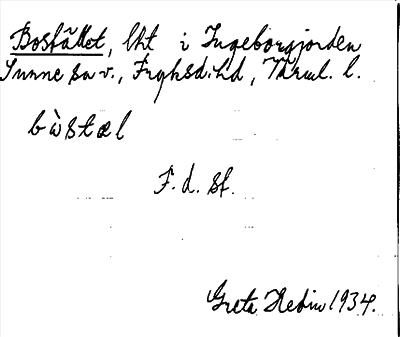 Bosfället, lht i Ingeborgjorden
Sunne sn v., Fryksd. hd, Värml. l.
bòstæl
F. d. sf.
Greta Hedin 1934.